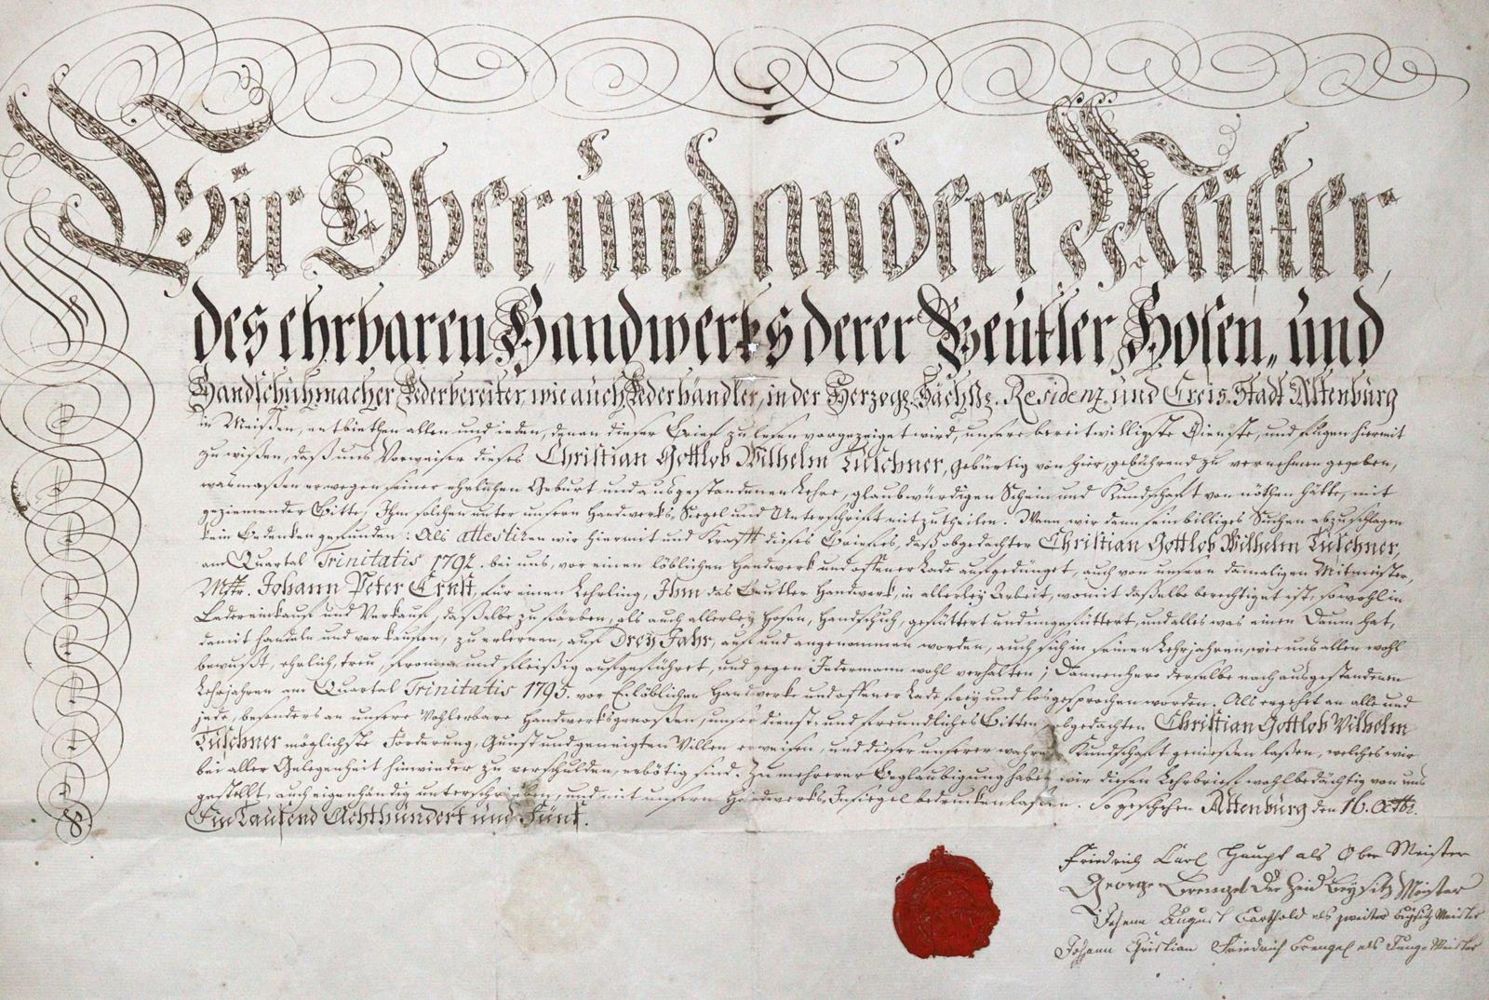 Wir Ober und andere Meister,
des ehrbaren Handwerks derer Beutler Hosen„ und
Handschuhmacher Lederbereiter wie auch Lederhändler, in der Herzogl. Sächß. Residenz und Creis. Stadt Altenburg
in Meißen, entbiethen allen und ieden, denen dieser Brief zu lesen vorgezeiget wird, unsere bereitwilligste Dienste, und fügen hiermit
zu wißen, daß uns Vorweiser dieses Christian Gottlob Wilhelm Tuschner, gebürtig von hier, gebührend zu vernehmen gegeben,
wasmaßen er wegen seiner ehrlichen Geburt und ausgestandenen Lehre, glaubwürdigen Schein und Kundschaft von nöthen hätte, mit
geziemender Bitte, Ihm solchen unter unsern Handwerks, Siegel und Unterschrift mitzutheilen. Wann wir denn sein billiges Suchen abzuschlagen
kein Bedenken gefunden: Als attestiren wir hiermit und Krafft dieses Briefes, daß obgedachter Christian Gottlob Wilhelm Tuschner,
am Quartal Trinitatis 1792. bei uns, vor einen löblichen Handwerk und offener Lade aufgedünget, auch von unsern damaligen Mitmeister,
Mstr. Johann Peter Ernst, für einen Lehrling, Ihm das Beutler Handwerk, in allerley Arbeit, womit daßelbe berechtiget ist, sowohl in
Ledereinkauf und Verkauf, daßelbe zu färben, als auch allerley Hosen, Handschuh, gefüttert und ungefüttert, und alles was einen Daum hat,
damit handeln und verkaufen, zu erlernen, auf Drey Jahr, auf und angenommen worden, auch sich in seinen Lehrjahren, wie uns allen wohl
bewußt, ehrlich, treu, fromm und fleißig aufgeführet, und gegen Jedermann wohl verhalten; Dannenhero derselbe nach ausgestandenen
Lehrjahren am Quartal Trinitatis 1795. vor E. löblichen Handwerke und offener Lade frey und losgesprochen worden. Als ergehet an alle und
jede, besonders an unsere Wohlerbare Handwerksgenoßen, unser dienst- und freundliches Bitten obgedachten Christian Gottlob Wilhelm
Tuschner möglichste Forderung, Gunst und geneigten Willen erweisen, und dieser unserer wahren Kundschaft genießen laßen, welches wir
bei aller Gelegenheit hinwieder zu verschulden, erbötig sind. Zu mehrerer Beglaubigung haben wir diesen Lehrbrief wohlbedächtig von uns
gestellt, auch eigenhändig unterschrieben, und mit unsern Handwerks Insiegel bedrucken laßen. So geschehen Altenburg den 16. Octbr.
Ein Tausend Achthundert und Fünf.
Friedrich Carl Haupt als Ober Meister
George Brengel Beysitz Meister
Johann August Barthold als zweiter Beysitz Meister
Johann Christian Friedrich Brengel als Junge Meister